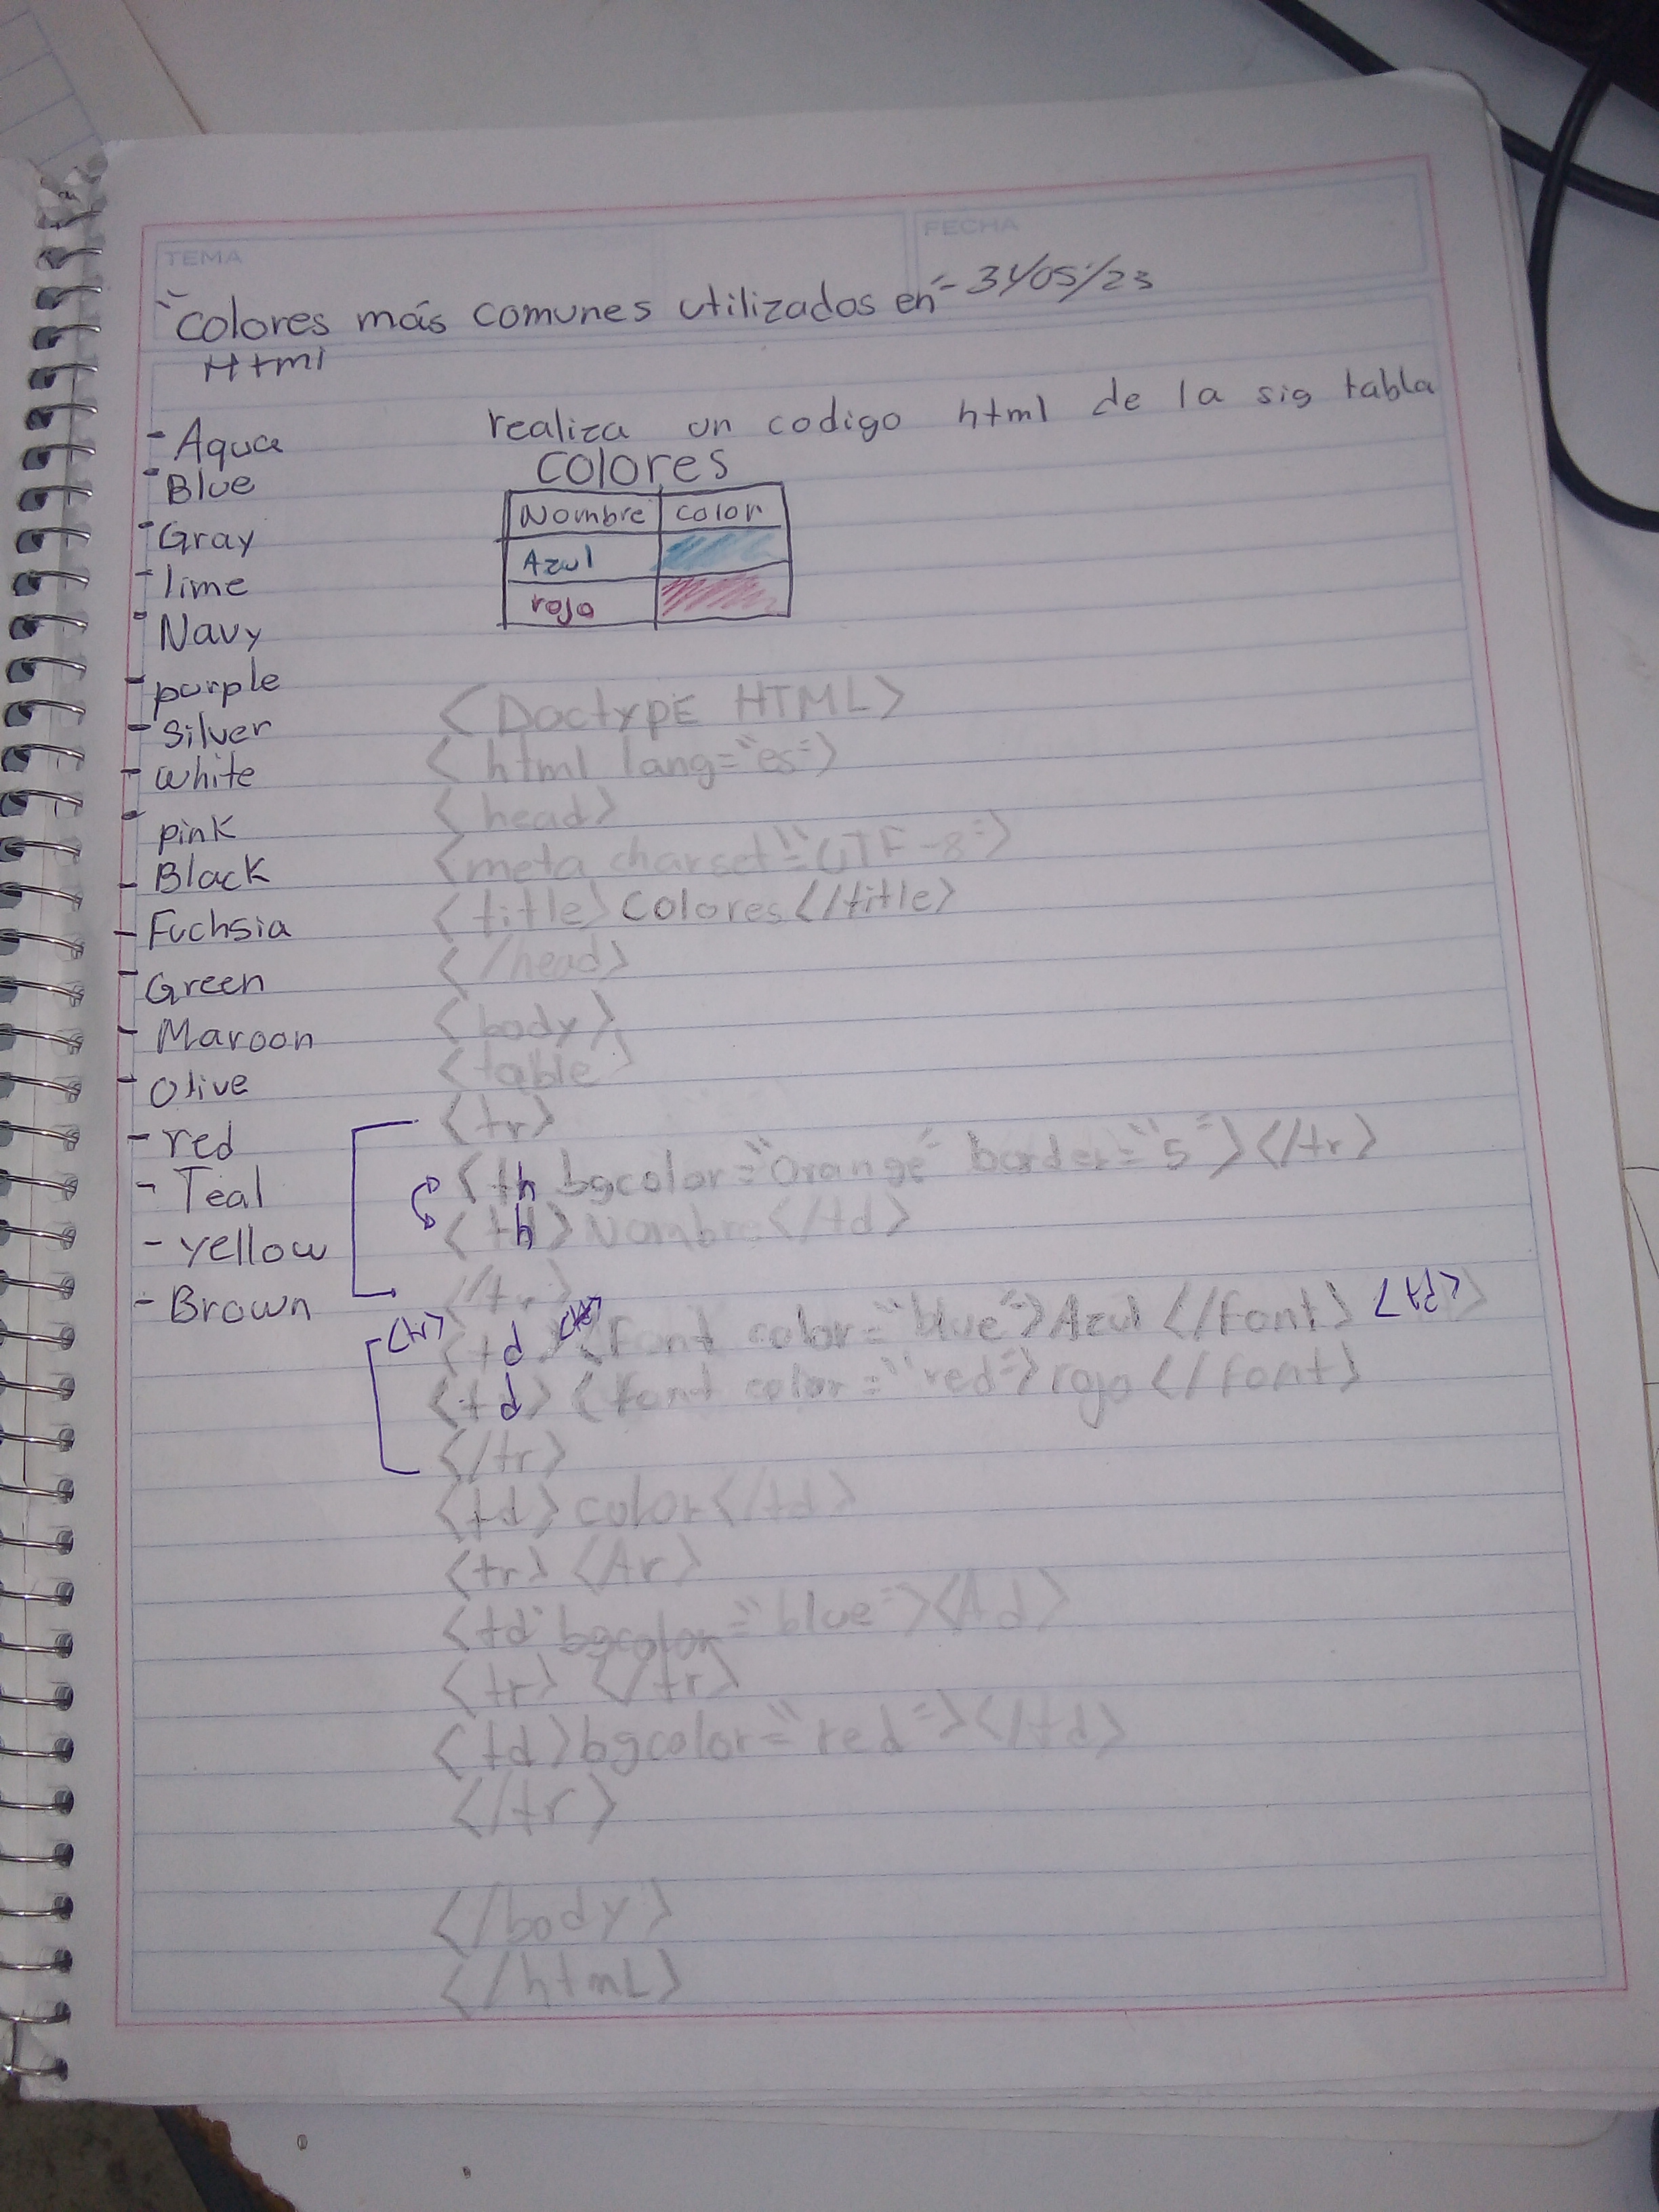 TEMA
FECHA
"Colores más comunes utilizados en" - 31/05/23
Html
- Aqua
- Blue
- Gray
- lime
- Navy
- purple
- Silver
- white
- pink
- Black
- Fuchsia
- Green
- Maroon
- Olive
- red
- Teal
- yellow
- Brown
realiza un codigo html de la sig tabla
colores
Nombre color
Azul
rojo
<DoctypE HTML>
<html lang="es">
<head>
<meta charset="UTF-8">
<title>Colores</title>
</head>
<body>
<table>
<tr>
<th bgcolor="Orange" border="5"></tr>
<th>Nombre</td>
</tr>
<tr>
<td> <Font color="blue">Azul </font> </td>
<td> <font color="red">rojo </font>
</tr>
<td>color</td>
<tr> </tr>
<td bgcolor="blue"></td>
<tr> </tr>
<td>bgcolor="red"></td>
</tr>
</body>
</htmL>